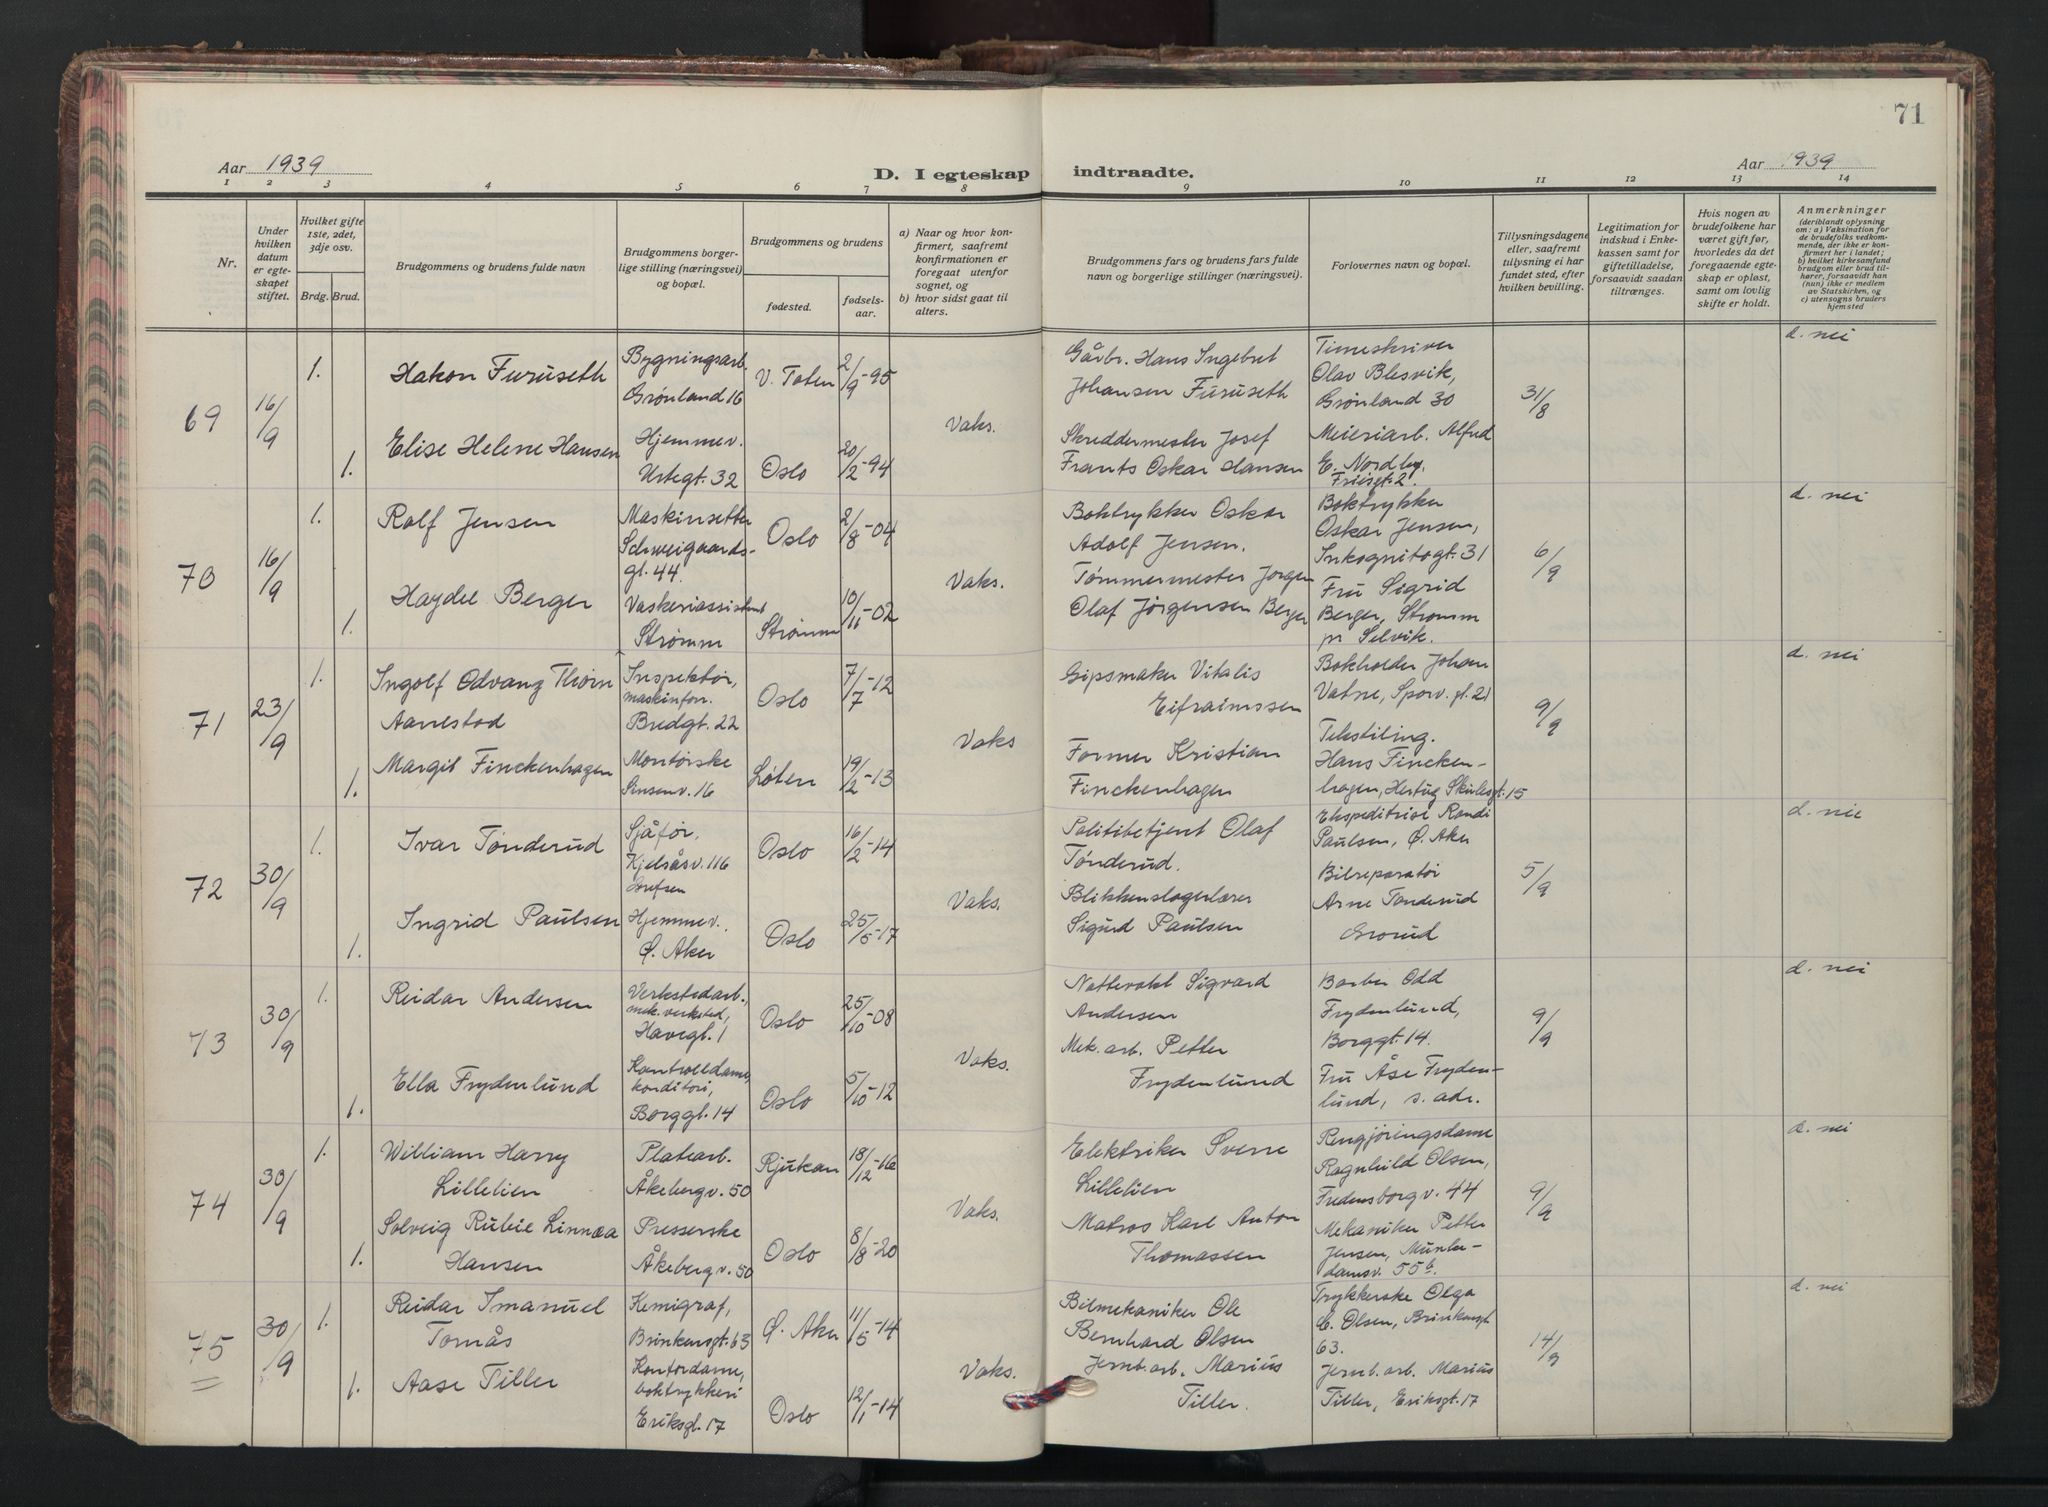 71
Aar 1939
D. I egteskap indtraadte.
Aar 1939
1 2 3 4 5 6 7 8 9 10 11 12 13 14
Nr.
Under hvilken datum er egteskapet stiftet.
Hvilket gifte 1ste, 2det, 3dje osv.
Brdg. Brud.
Brudgommens og brudens fulde navn
Brudgommens borgerlige stilling (næringsvei) og bopæl.
Brudgommens og brudens
fødested.
fødselsaar.
a) Naar og hvor konfirmert, saafremt konfirmationen er foregaat utenfor sognet, og
b) hvor sidst gaat til alters.
Brudgommens fars og brudens fars fulde navn og borgerlige stillinger (næringsvei).
Forlovernes navn og bopæl.
Tillysningsdagene eller, saafremt tillysning ei har fundet sted, efter hvilken bevilling.
Legitimation for indskud i Enkekassen samt for giftetilladelse, forsaavidt saadan tiltrænges.
Hvis nogen av brudefolkene har været gift før, hvorledes da det foregaaende egteskap er opløst, samt om lovlig skifte er holdt.
Anmerkninger
(deriblandt oplysning om: a) Vaksination for de brudefolks vedkommende, der ikke er konfirmert her i landet;
b) hvilket kirkesamfund brudgom eller brud tilhører, forsaavidt han (hun) ikke er medlem av Statskirken, og
c) utensogns bruders hjemsted
69
16/9
1.
Hakon Furuseth
Bygningsarb.
Grønland 16
V. Toten
2/9-95
Vaks.
Gårbr. Hans Ingebret
Johansen Furuseth
Timeskriver
Olav Blesvik,
Grønland 30
31/8
d. nei
1.
Elise Helene Hansen
Hjemmev.
Urtegt. 32
Oslo
20/2-94
Skreddermester Josef
Frants Oskar Hansen
Meieriarb. Alfred
E. Nordby,
Friisgt. 2.
70
16/9
1.
Rolf Jensen
Maskinsetter
Schweigaards-
gt. 44.
Oslo
2/8-04
Vaks.
Boktrykker Oskar
Adolf Jensen.
Boktrykker
Oskar Jensen,
Inkognitogt. 31
6/9
d. nei
1.
Haydee Berger
Vaskeriassistent
Strømm
Strømm
10/11-02
Tømmermester Jørgen
Olaf Jørgensen Berger
Fru Sigrid
Berger, Strømm
pr Selvik.
71
23/9
1.
Ingolf Odvang Thorn
Aanestad
Inspektør,
maskinforr.
Bredgt. 22
Oslo
7/7-12
Vaks
Gipsmaker Vitalis
Eifraimssen
Bokholder Johan
Vatne, Sporv. gt. 21
9/9
d. nei
1.
Margit Finckenhagen
Montørske
Sinsenv. 16
Løten
19/2-13
Former Kristian
Finckenhagen
Tekstiling.
Hans Fincken-
hagen, Hertug Skulesgt. 15
72
30/9
1.
Ivar Tønderud
Sjåfør,
Kjelsåsv. 116
Grefsen
Oslo
16/2-14
Vaks.
Politibetjent Olaf
Tønderud.
Ekspeditrise Randi
Paulsen, Ø. Aker
5/9
d. nei
1.
Ingrid Paulsen
Hjemmev.
Ø. Aker
Oslo
25/5-17
Blikkenslagerlærer
Sigurd Paulsen
Bilreparatør
Arne Tønderud
Grorud
73
30/9
1.
Reidar Andersen
Verkstedarb.,
mek. verksted,
Havegt. 1
Oslo
25/10-08
Vaks.
Nattevakt Sigvard
Andersen
Barber Odd
Frydenlund,
Borggt. 14.
9/9
d. nei
1.
Ella Frydenlund
Kontrolldame,
konditori,
Borggt. 14
Oslo
5/10-12
Mek. arb. Petter
Frydenlund
Fru Åse Fryden-
lund, s. adr.
74
30/9
1.
William Harry
Lillelien
Platearb.
Åkebergv. 50
Rjukan
18/12-16
Vaks.
Elektriker Sverre
Lillelien
Rengjøringsdame
Ragnhild Olsen,
Fredensborgv. 44
9/9
d. nei
1.
Solveig Rubie Linnæa
Hansen
Presserske
Åkebergv. 50
Oslo
8/8-20
Matros Karl Anton
Thomassen
Mekaniker Petter
Jensen, Munke-
damsv. 55b.
75
30/9
1.
Reidar Imanuel
Tomås
Kemigraf,
Brinkensgt. 63
Ø. Aker
11/5-14
Vaks.
Bilmekaniker Ole
Bernhard Olsen
Trykkerske Olga
C. Olsen, Brinkensgt
63.
14/9
d. nei
1.
Aase Tiller
Kontordame,
boktrykkeri
Eriksgt. 17
Oslo
12/1-14
Jernb. arb. Marius
Tiller.
Jernb. arb. Marius
Tiller, Eriksgt. 17